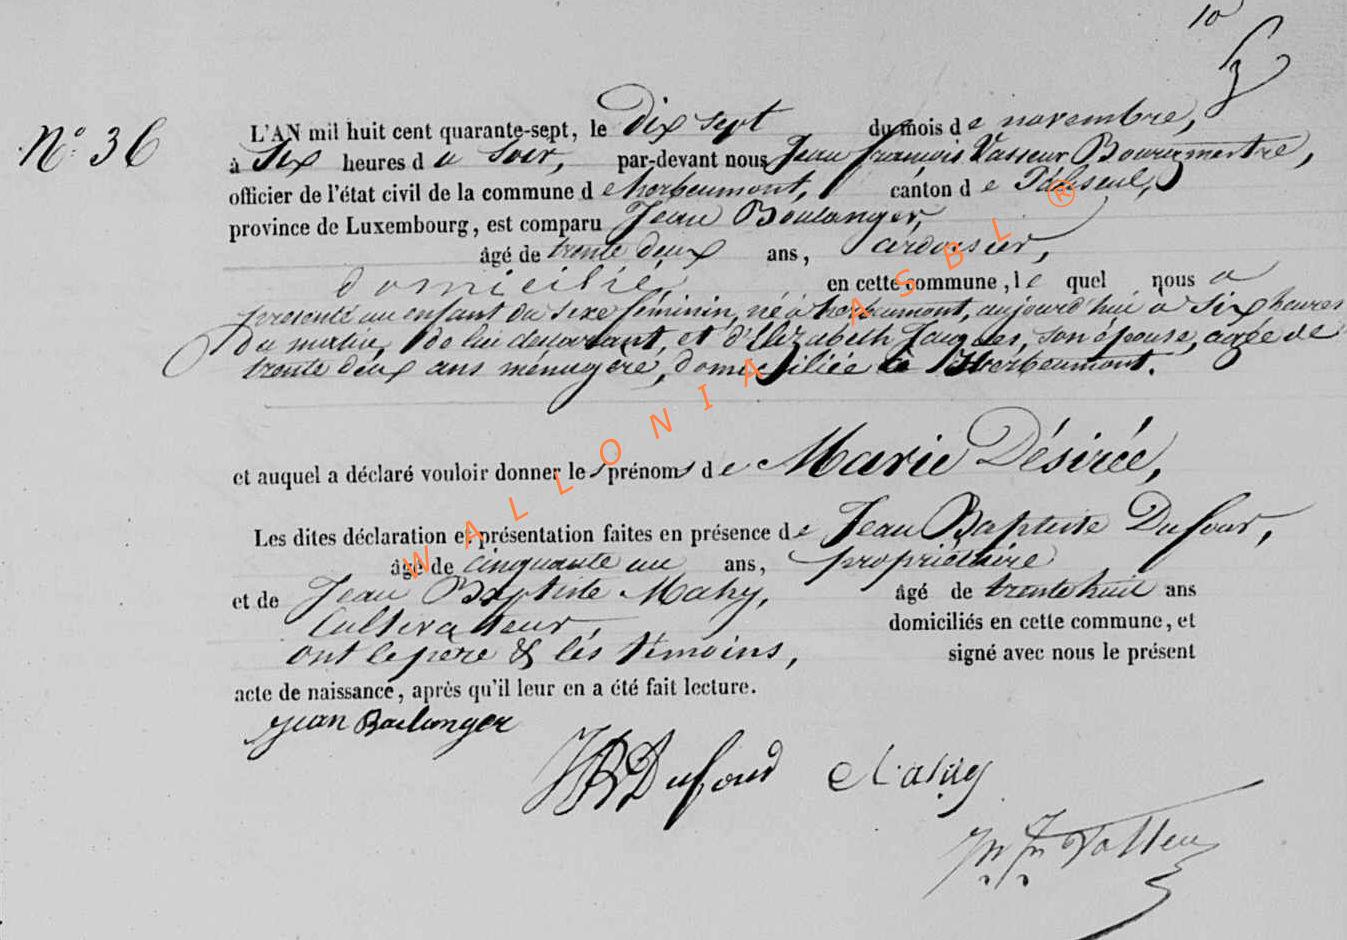 10
N° 36
L'AN mil huit cent quarante-sept, le dix sept du mois de novembre,
à Six heures du Soir, par-devant nous Jean françois Vasseur Bourgmestre,
officier de l'état civil de la commune de herbeumont, canton de Paliseul,
province de Luxembourg, est comparu Jean Boulanger,
âgé de trente deux ans, ardoisier,
domicilié en cette commune, le quel nous a
presenté un enfant du sexe féminin, né à herbeumont, aujourd'hui à six heures
du matin, de lui déclarant, et d'Elizabeth Jacques, son épouse, agée de
trente deux ans ménagère, domiciliée à Herbeumont.
et auquel a déclaré vouloir donner les prénoms de Marie Désirée,
Les dites déclaration et présentation faites en présence de Jean Baptiste Dufour,
âgé de cinquante un ans, propriétaire
et de Jean Baptiste Mahy, âgé de trente huit ans
Cultivateur, domiciliés en cette commune, et
ont le père & les témoins, signé avec nous le présent
acte de naissance, après qu'il leur en a été fait lecture.
Jean Boulanger
JB Dufour Mahy
WALLONIA ASBL ®